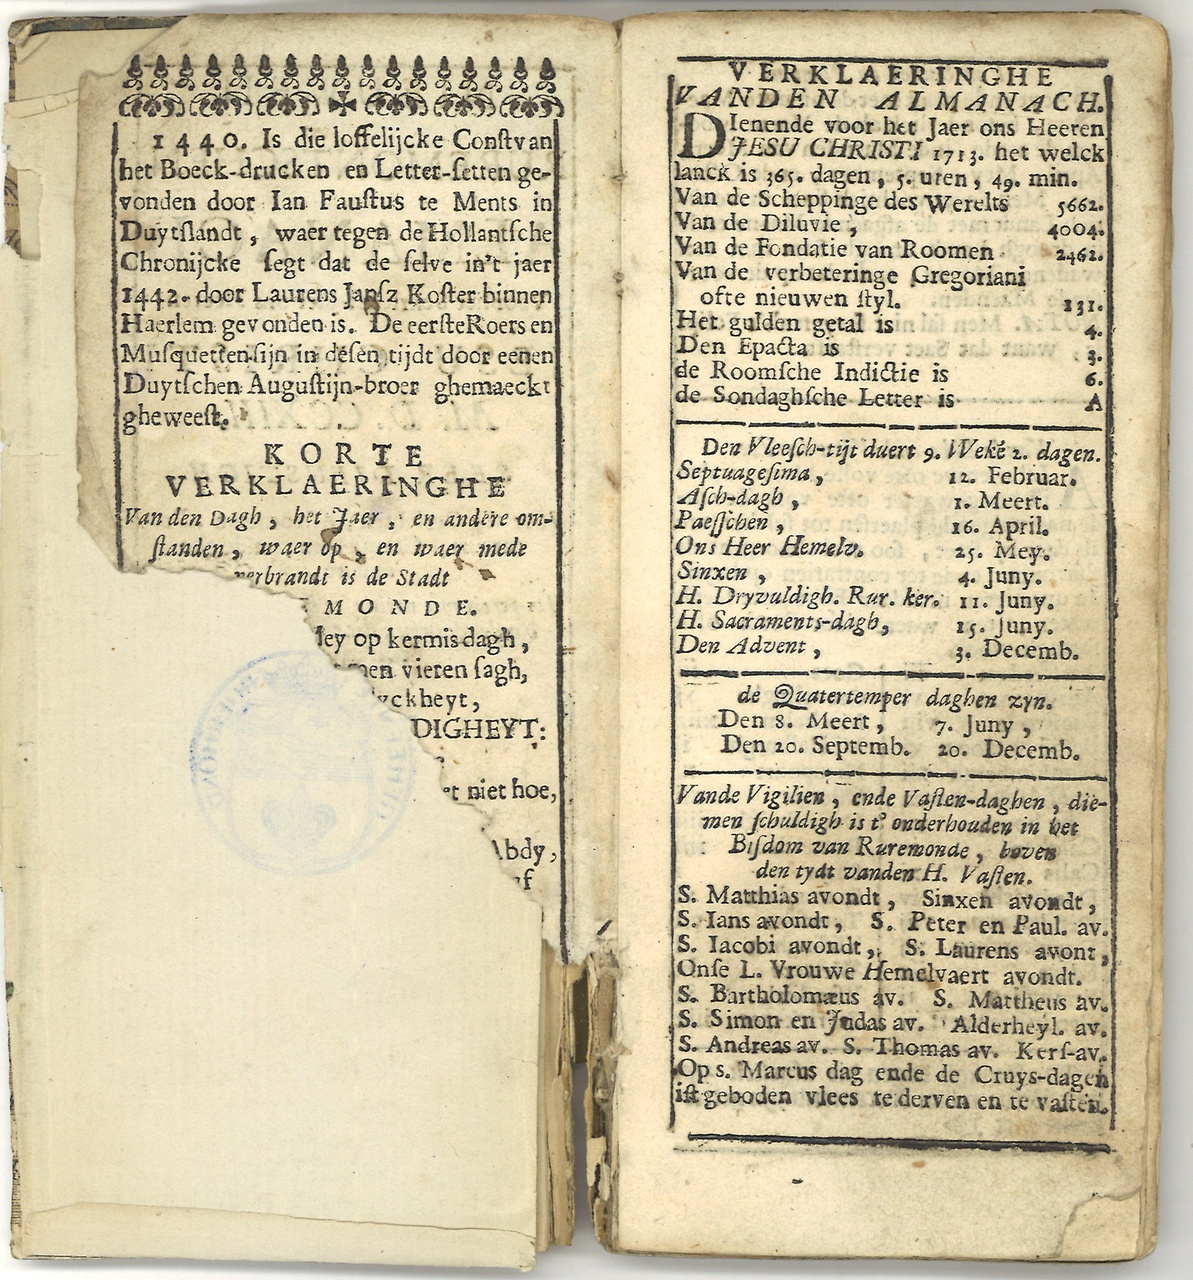 1440. Is die loffelijcke Const van
het Boeck-drucken en Letter-setten ge-
vonden door Ian Faustus te Ments in
Duytslandt, waer tegen de Hollantsche
Chronijcke segt dat de selve in't jaer
1442. door Laurens Jansz Koster binnen
Haerlem gevonden is. De eerste Roers en
Musquetten sijn in desen tijdt door eenen
Duytschen Augustijn-broer ghemaeckt
gheweest.
KORTE
VERKLAERINGHE
Van den Dagh, het Jaer, en andere om-
standen, waer op, en waer mede
verbrandt is de Stadt
MONDE.
Mey op kermis dagh,
men vieren sagh,
yckheyt,
DIGHEYT:
et niet hoe,
Abdy,
VERKLAERINGHE
VANDEN ALMANACH.
DIenende voor het Jaer ons Heeren
JESU CHRISTI 1713. het welck
lanck is 365. dagen, 5. uren, 49. min.
Van de Scheppinge des Werelts 5662.
Van de Diluvie, 4004.
Van de Fondatie van Roomen 2462.
Van de verbeteringe Gregoriani
ofte nieuwen styl. 131.
Het gulden getal is 4.
Den Epacta is 3.
de Roomsche Indictie is 6.
de Sondaghsche Letter is A
Den Vleesch-tijt duert 9. Wekē 2. dagen.
Septuagesima, 12. Februar.
Asch-dagh, 1. Meert.
Paesschen, 16. April.
Ons Heer Hemelv. 25. Mey.
Sinxen, 4. Juny.
H. Dryvuldigh. Rur. ker. 11. Juny.
H. Sacraments-dagh, 15. Juny.
Den Advent, 3. Decemb.
de Quatertemper daghen zyn.
Den 8. Meert, 7. Juny,
Den 20. Septemb. 20. Decemb.
Vande Vigilien, ende Vasten-daghen, die-
men schuldigh is t' onderhouden in het
Bisdom van Ruremonde, boven
den tydt vanden H. Vasten.
S. Matthias avondt, Sinxen avondt,
S. Ians avondt, S. Peter en Paul. av.
S. Iacobi avondt, S. Laurens avont,
Onse L. Vrouwe Hemelvaert avondt.
S. Bartholomæus av. S. Mattheus av.
S. Simon en Judas av. Alderheyl. av.
S. Andreas av. S. Thomas av. Kers-av.
Op s. Marcus dag ende de Cruys-dagen
ist geboden vlees te derven en te vasten.